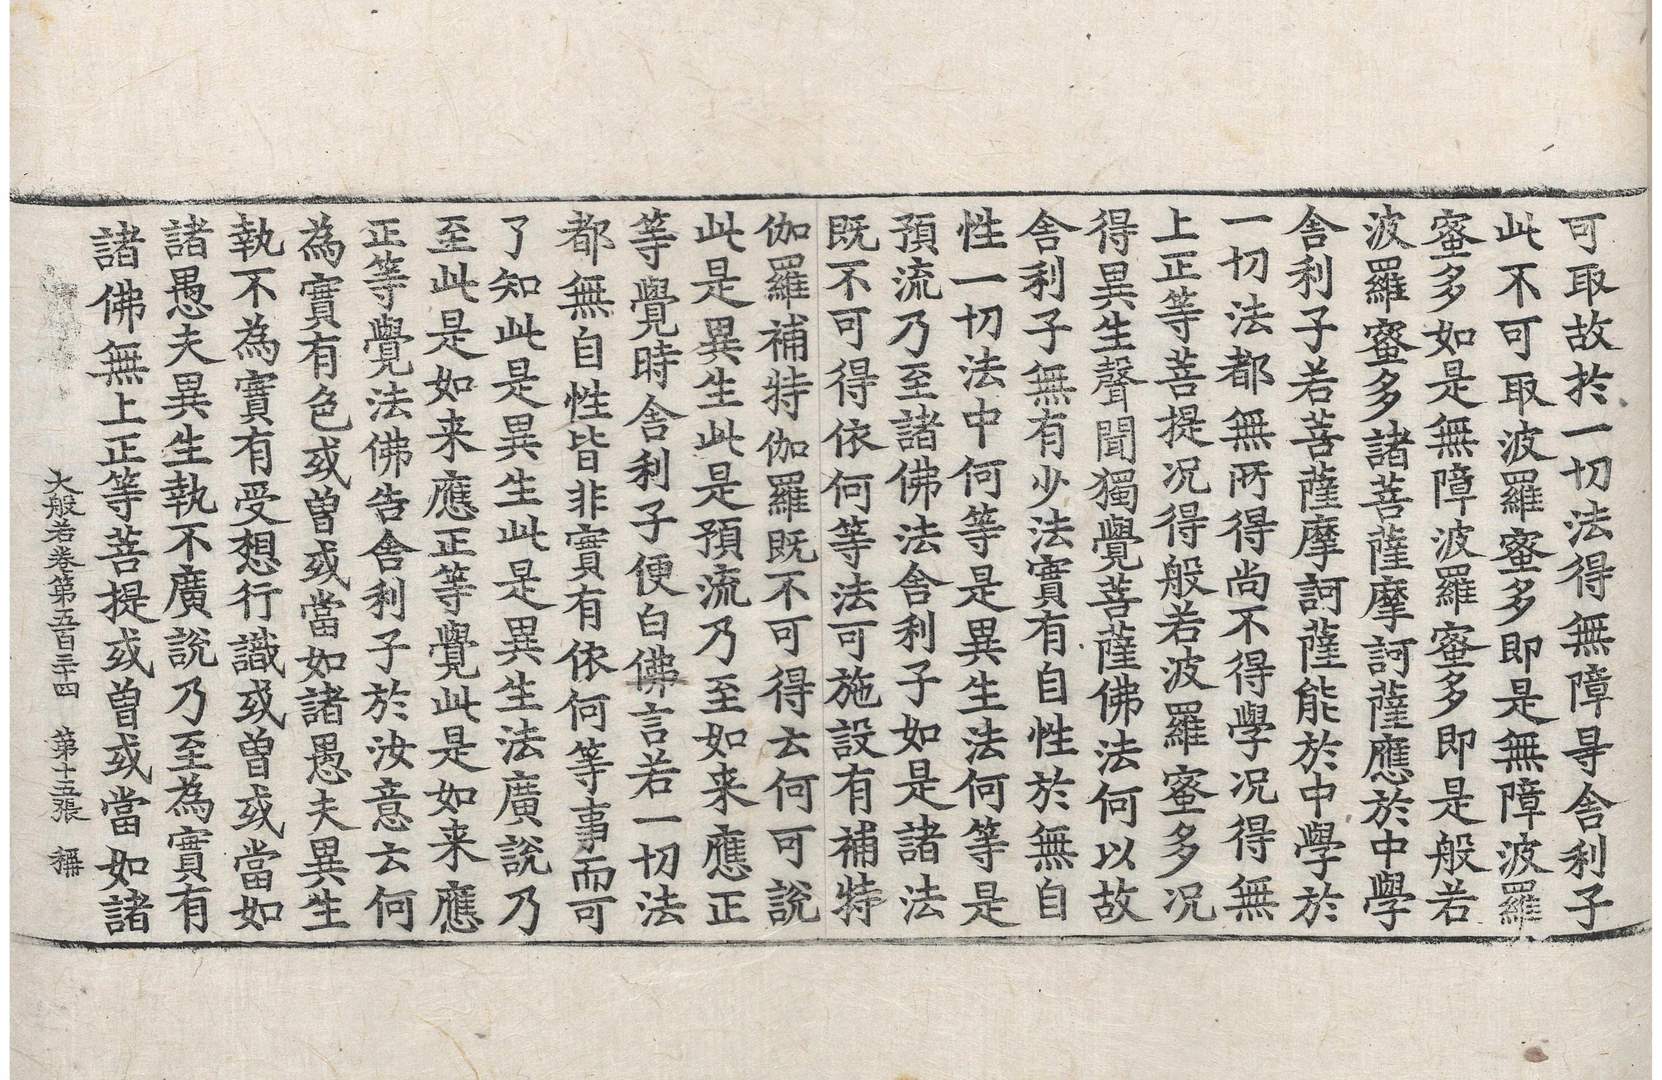 可取故於一切法得無障㝵舎利子
此不可取波羅蜜多即是無障波羅
蜜多如是無障波羅蜜多即是般若
波羅蜜多諸菩薩摩訶薩應於中學
舎利子若菩薩摩訶薩能於中學於
一切法都無所得尚不得學况得無
上正等菩提况得般若波羅蜜多况
得異生聲聞獨覺菩薩佛法何以故
舎利子無有少法實有自性於無自
性一切法中何等是異生法何等是
預流乃至諸佛法舎利子如是諸法
既不可得依何等法可施設有補特
伽羅補特伽羅既不可得云何可說
此是異生此是預流乃至如来應正
等覺時舎利子便白佛言若一切法
都無自性皆非實有依何等事而可
了知此是異生此是異生法廣說乃
至此是如来應正等覺此是如来應
正等覺法佛告舎利子於汝意云何
為實有色或曽或當如諸愚夫異生
執不為實有受想行識或曽或當如
諸愚夫異生執不廣說乃至為實有
諸佛無上正等菩提或曽或當如諸
大般若卷第五百三十四 第十五張 稱